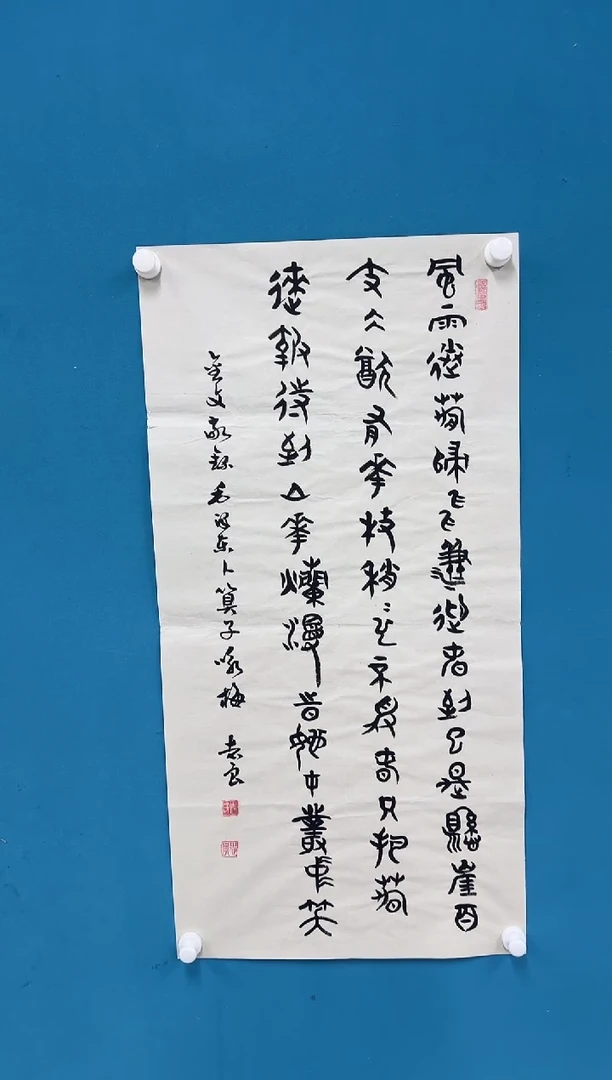 風雨送春歸飛雪迎春到已是懸崖百
丈冰猶有花枝俏〻也不爭春只把春
來報待到山花爛漫時她在叢中笑
金文敬録毛澤東卜算子咏梅